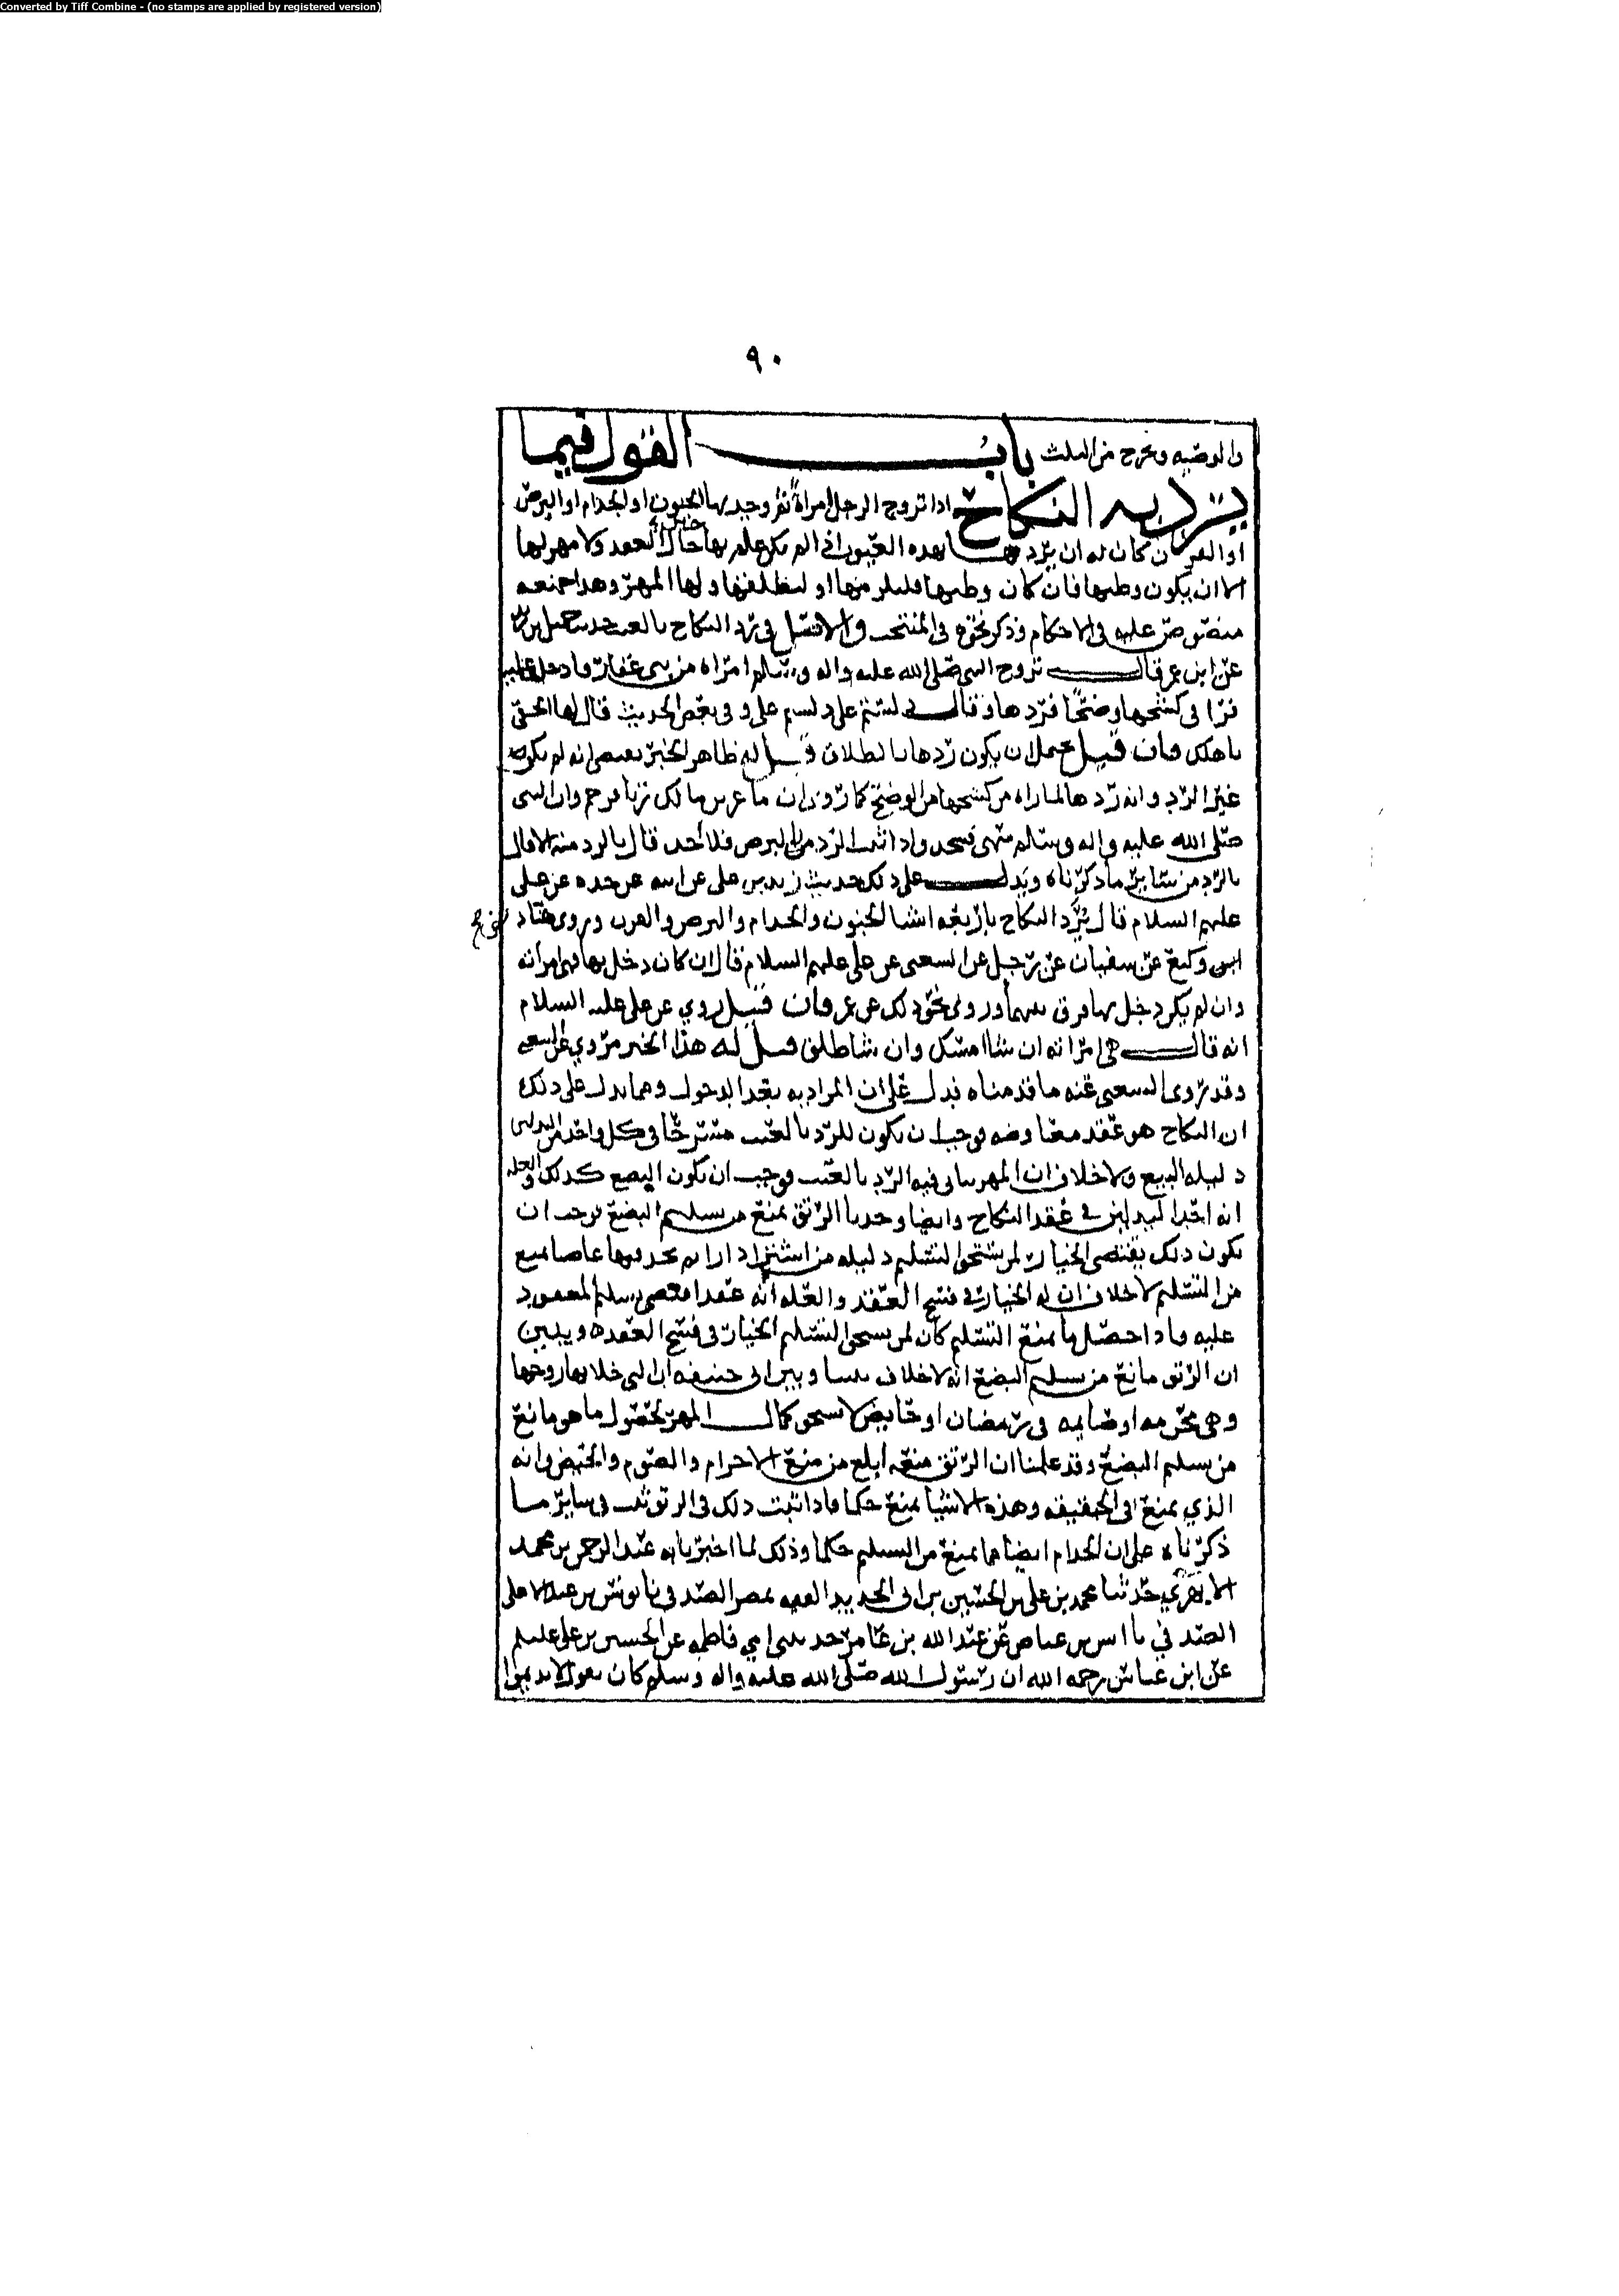 Converted by Tiff Combine - (no stamps are applied by registered version)
٩٠
والوصيه وتخرج من الثلث باب القول فيما
يرد به النكاح اذا تزوج الرجل امراة ثم وجد بها الجنون او الجذام او البرص
او القرن كان له ان يردها بهذه العيوب اذا لم يكن علم بها حال العقد ولا مهر لها
الا ان يكون وطيها فان كان وطيها او ليطلقها ولها المهر وهذا جميعه
منصوص عليه في الاحكام وذكر نحوه في المنتخب والاصل في رد النكاح بالعيب حديث جميل بن زيد
عن ابن عمر قال تزوج النبي صلى الله عليه واله وسلم امراه من بني غفار فادخلت عليه
فرا في كشحها وضحًا فردها وقال دلستم علي دلستم علي وفي بعض الحديث قال لها الحقي
باهلك فان قيل يحتمل ان يكون ردها بالطلاق قيل له ظاهر الخبر يقتضي انه لم يكن منه
غير الرد وانه ردها لما راه من كشحها من الوضح كما روي ان ماعز بن مالك زنا فرجم وان النبي
صلى الله عليه واله وسلم سهى فسجد واذا ثبت الرد من البرص فلا أحد قال بالرد منه الا قال
بالرد من سائر ما ذكرناه ويدل على ذلك حديث زيد بن علي عن ابيه عن جده عن علي
عليهم السلام قال يرد النكاح باربعة اشيا الجنون والجذام والبرص والقرن وروى هناد
وكيع عن سفيان عن رجل عن الشعبي عن علي عليهم السلام قال ان كان دخل بها فهي امرأته
وان لم يكن دخل بها فرق بينهما وروي نحو ذلك عن عمر فان قيل روي عن علي عليه السلام
انه قال هي امراته ان شا امسك وان شا طلق قيل له هذا الخبر مروي عن الشعبي
وقد روى الشعبي عنه ما قدمناه فدل على ان المراد به بعد الدخول ومما يدل على ذلك
ان النكاح هو عقد معاوضه فوجب ان يكون للرد بالعيب مسرحًا في كل واحد من البدلين
دليله البيع ولا خلاف ان المهر يتاتى فيه الرد بالعيب فوجب ان يكون البضع كذلك والعله
انه احد البدلين في عقد النكاح وايضا وجدنا الرتق يمنع من تسليم البضع فوجب ان
يكون ذلك يقتضي الخيار لمن يستحق التسليم دليله من اشترا دارا ثم يجد فيها غاصبا يمنع
من التسليم لا خلاف ان له الخيار في فسخ العقد والعله انه عقد اقتضى تسليم المعقود
عليه فاذا حصل ما يمنع التسليم كان لمن يستحق التسليم الخيار في فسخ العقده ويبين
ان الرتق مانع من تسليم البضع انه لا خلاف بيننا وبين ابي حنيفه ان التي خلا بها زوجها
وهي محرمه او صايمه في رمضان او حايض لا تستحق كمال المهر لحصول ما هو مانع
من تسليم البضع وقد علمنا ان الرتق منعه ابلغ من منع الاحرام والصوم والحيض وانه
الذي يمنع في الحقيقه وهذه الاشيا تمنع حكما فاذا ثبت ذلك في الرتق ثبت في ساير ما
ذكرناه على ان الجذام ايضا مما يمنع من التسليم حكما وذلك لما اخبرنا به عبد الرحمن بن محمد
الابهري حدثنا محمد بن علي بن الحسين بن ابي الحديد الفقيه بمصر الصدفي نا يونس بن عبد الاعلى
الصدفي نا انس بن عياض عن عبد الله بن عامر حدثتني امي فاطمه عن الحسين بن علي عليهم
عن ابن عباس رحمه الله ان رسول الله صلى الله عليه واله وسلم كان يقول لا تديموا